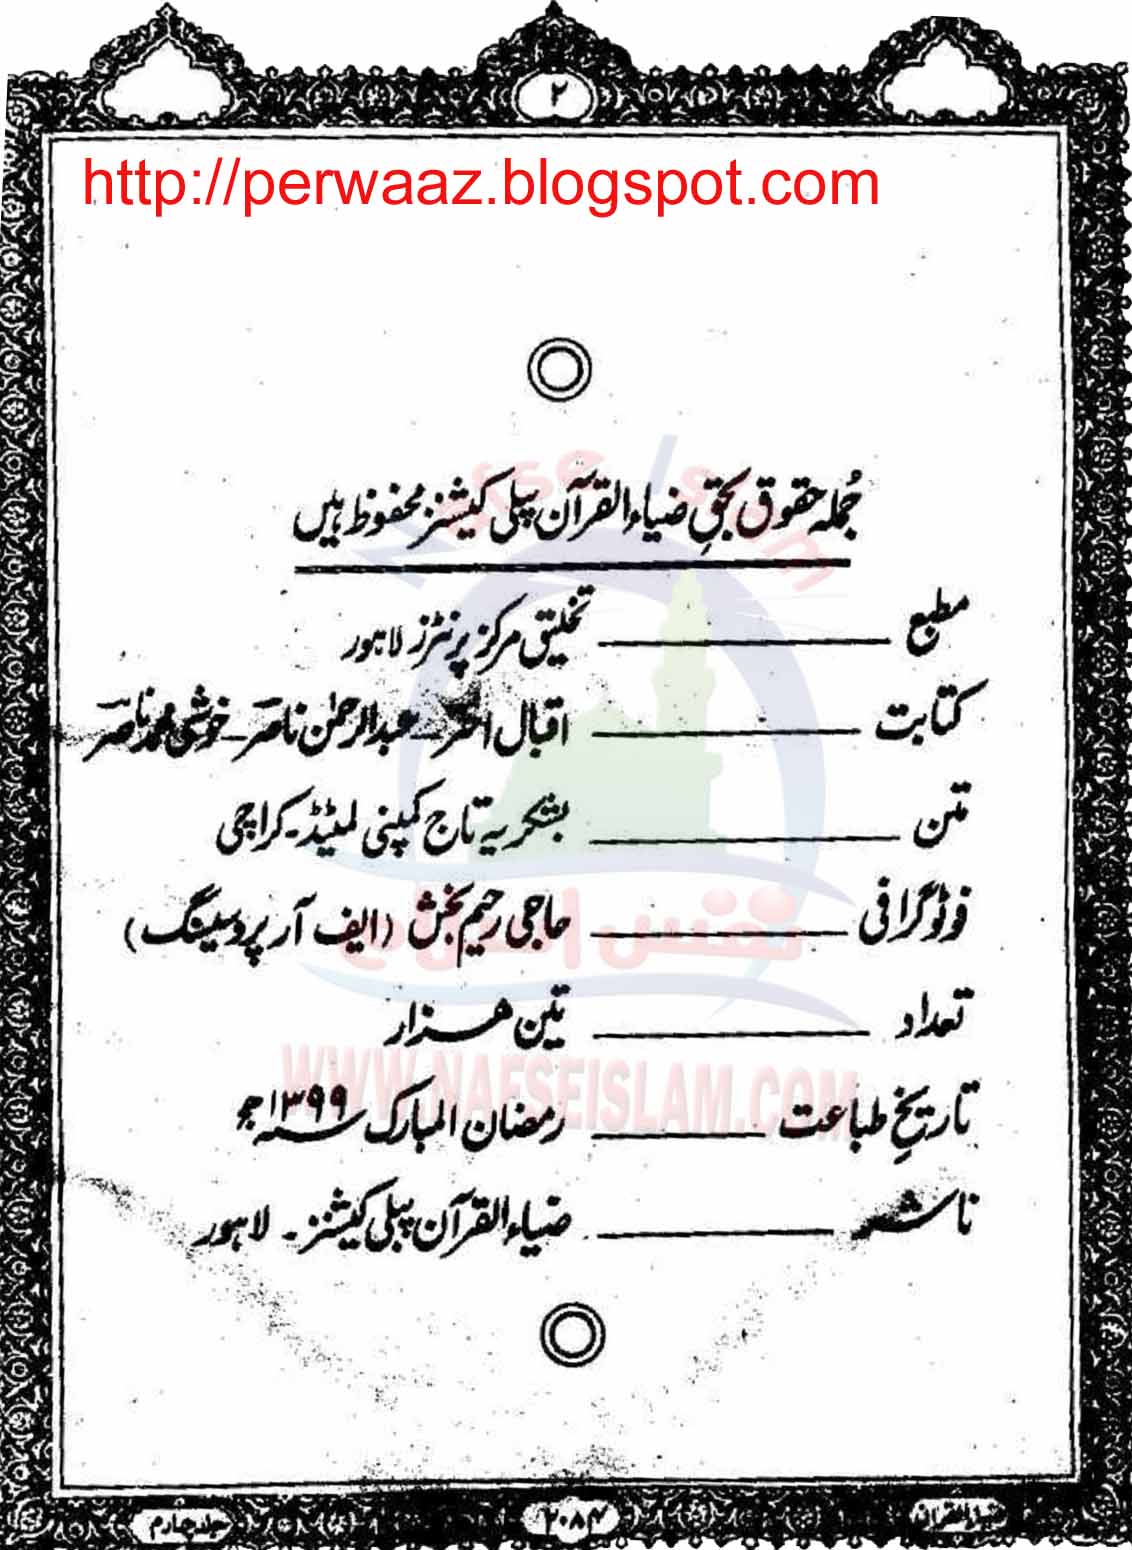 ۲
http://perwaaz.blogspot.com
جُملہ حقوق بحقِ ضیاء القرآن پبلی کیشنز محفوظ ہیں
مطبع ــــــــ تخلیق مرکز پرنٹرز لاہور
کتابت ــــــــ اقبال احمد ـ عبدالرحمٰن ناصر ـ خوشی محمد ناصر
متن ــــــــ بشکریہ تاج کمپنی لمیٹڈ ـ کراچی
فوٹوگرافی ــــــــ حاجی رحیم بخش (ایف آر پروسیسنگ)
تعداد ــــــــ تین ھزار
تاریخِ طباعت ــــــــ رمضان المبارک ۱۳۹۹ھ
ناشر ــــــــ ضیاء القرآن پبلی کیشنز ۔ لاہور
Nafse Islam
نفس اسلام
WWW.NAFSEISLAM.COM
ضیاء القرآن
جلد چہارم